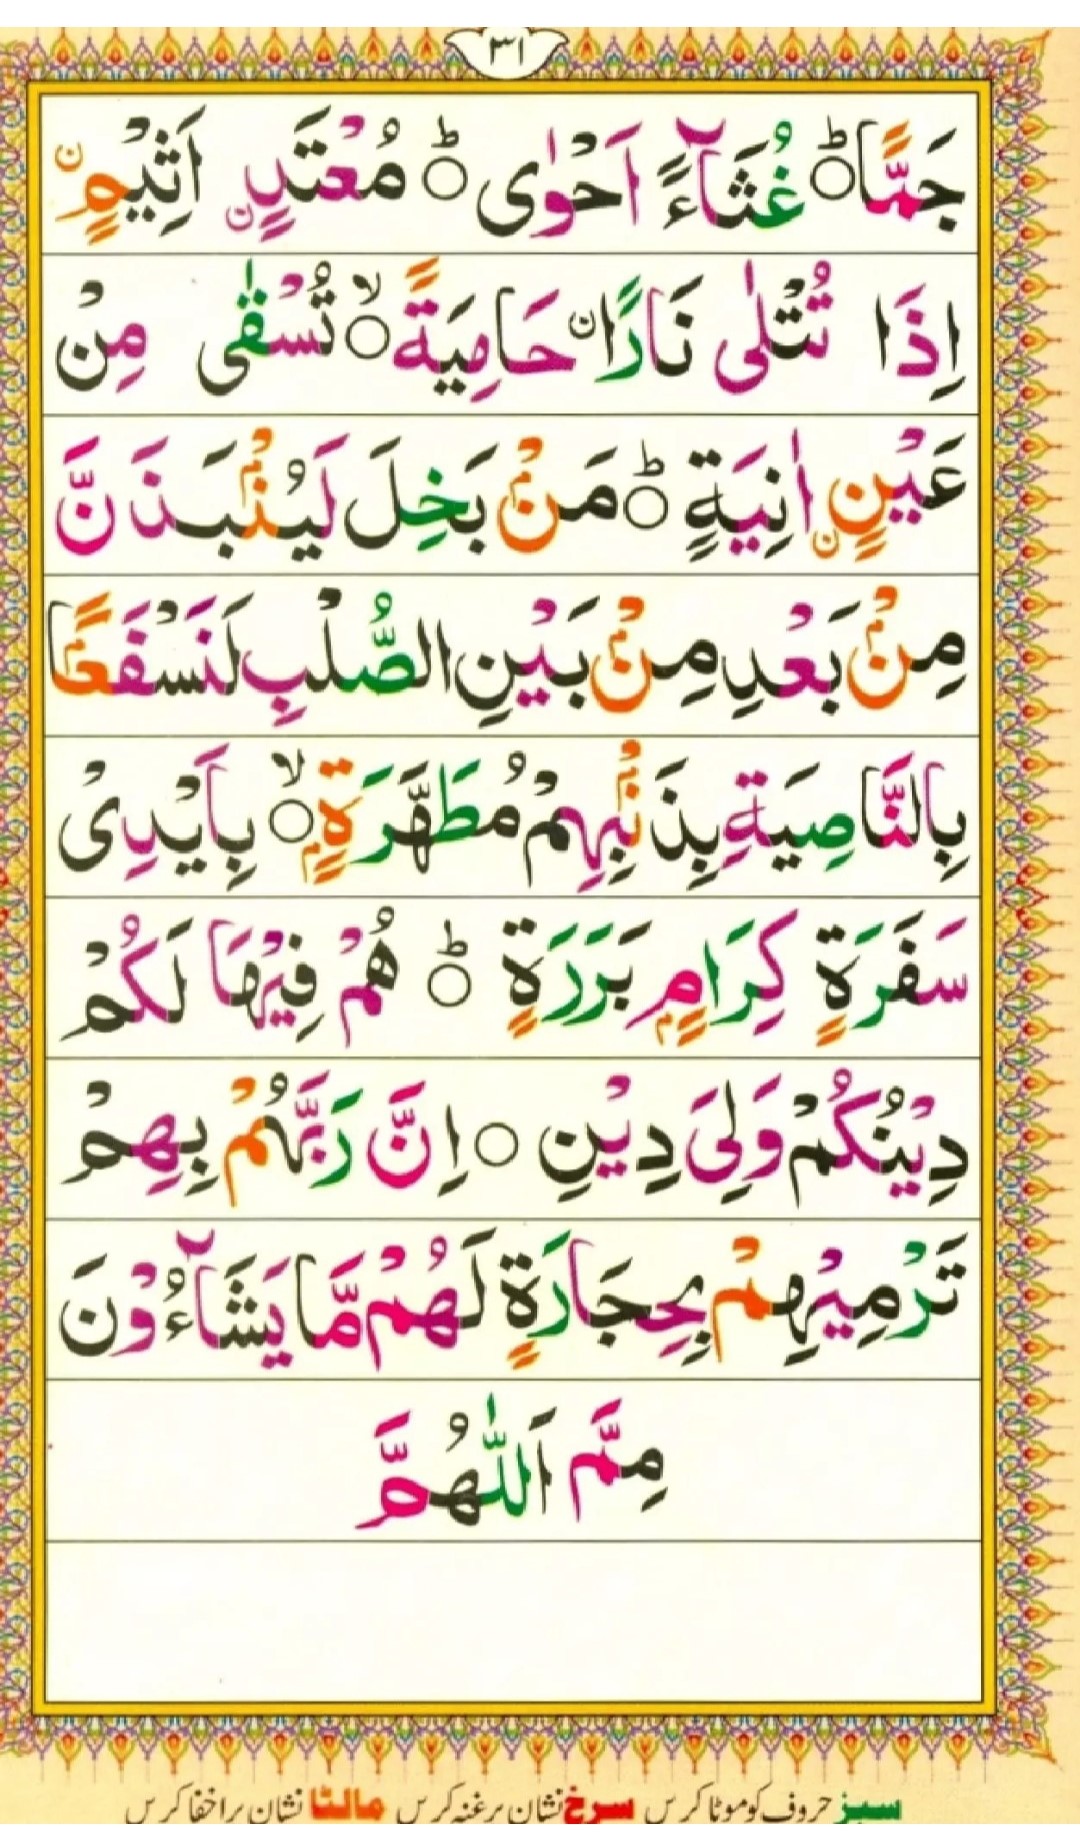 ٣١
جَمًّا ؕ○ غُثَآءً اَحْوٰى ؕ○ مُعْتَدٍ ن اَثِيْمٍ ن
اِذَا تُتْلٰى نَارًا ن حَامِيَةً ۙ○ تُسْقٰى مِنْ
عَيْنٍ ن اٰنِيَةٍ ؕ○ مَنْۢ بَخِلَ لَيُنْۢبَذَنَّ
مِنْۢ بَعْدِ مِنْۢ بَيْنِ الصُّلْبِ لَنَسْفَعًۢا
بِالنَّاصِيَةِ بِذَنْۢبِهِمْ مُطَهَّرَةٍۭ ۙ○ بِاَيْدِىْ
سَفَرَةٍ كِرَامٍۭ بَرَرَةٍ ؕ○ هُمْ فِيْهَا لَكُمْ
دِيْنُكُمْ وَلِىَ دِيْنِ ○ اِنَّ رَبَّهُمْ بِهِمْ
تَرْمِيْهِمْ بِحِجَارَةٍ لَهُمْ مَّا يَشَآءُوْنَ
مِمَّ اَللّٰهُمَّ
سبز حروف کو موٹا کریں سرخ نشان پر غنہ کریں مالٹا نشان پر اخفا کریں